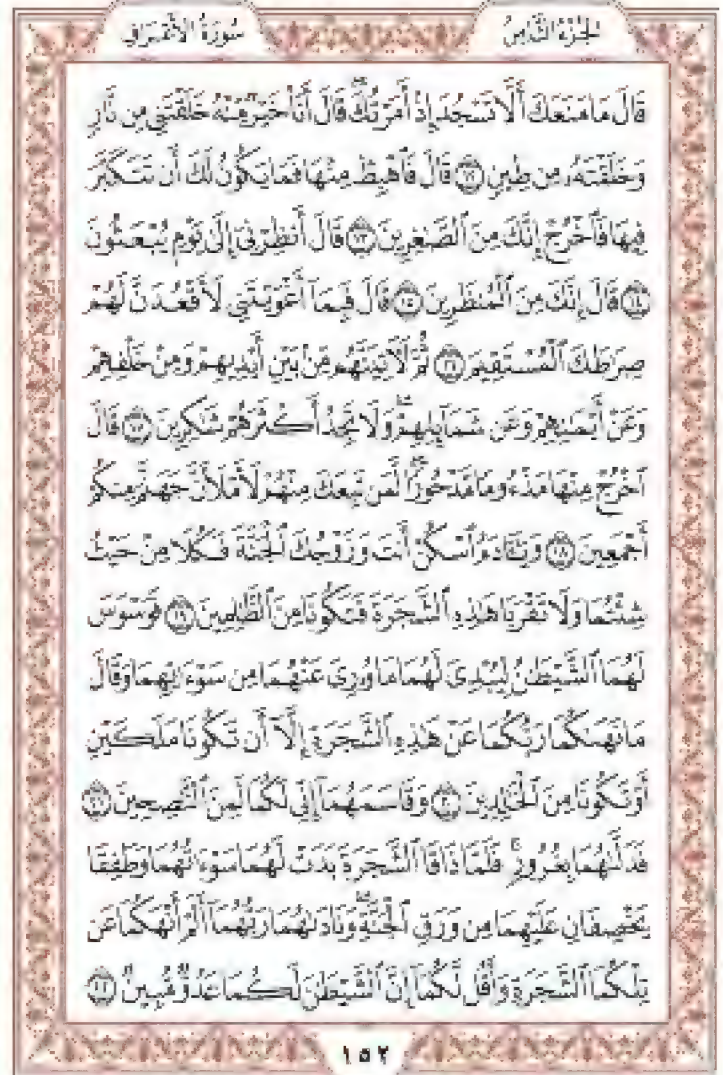 سُورَةُ الأَعْرَافِ
الجُزْءُ الثَّامِنُ
قَالَ مَا مَنَعَكَ أَلَّا تَسْجُدَ إِذْ أَمَرْتُكَ ۖ قَالَ أَنَا۠ خَيْرٌ مِّنْهُ خَلَقْتَنِى مِن نَّارٍ
وَخَلَقْتَهُۥ مِن طِينٍ ١٢ قَالَ فَٱهْبِطْ مِنْهَا فَمَا يَكُونُ لَكَ أَن تَتَكَبَّرَ
فِيهَا فَٱخْرُجْ إِنَّكَ مِنَ ٱلصَّـٰغِرِينَ ١٣ قَالَ أَنظِرْنِىٓ إِلَىٰ يَوْمِ يُبْعَثُونَ
١٤ قَالَ إِنَّكَ مِنَ ٱلْمُنظَرِينَ ١٥ قَالَ فَبِمَآ أَغْوَيْتَنِى لَأَقْعُدَنَّ لَهُمْ
صِرَٰطَكَ ٱلْمُسْتَقِيمَ ١٦ ثُمَّ لَـَٔاتِيَنَّهُم مِّنۢ بَيْنِ أَيْدِيهِمْ وَمِنْ خَلْفِهِمْ
وَعَنْ أَيْمَـٰنِهِمْ وَعَن شَمَآئِلِهِمْ ۖ وَلَا تَجِدُ أَكْثَرَهُمْ شَـٰكِرِينَ ١٧ قَالَ
ٱخْرُجْ مِنْهَا مَذْءُومًا مَّدْحُورًا ۖ لَّمَن تَبِعَكَ مِنْهُمْ لَأَمْلَأَنَّ جَهَنَّمَ مِنكُمْ
أَجْمَعِينَ ١٨ وَيَـٰٓـَٔادَمُ ٱسْكُنْ أَنتَ وَزَوْجُكَ ٱلْجَنَّةَ فَكُلَا مِنْ حَيْثُ
شِئْتُمَا وَلَا تَقْرَبَا هَـٰذِهِ ٱلشَّجَرَةَ فَتَكُونَا مِنَ ٱلظَّـٰلِمِينَ ١٩ فَوَسْوَسَ
لَهُمَا ٱلشَّيْطَـٰنُ لِيُبْدِىَ لَهُمَا مَا وُۥرِىَ عَنْهُمَا مِن سَوْءَٰتِهِمَا وَقَالَ
مَا نَهَىٰكُمَا رَبُّكُمَا عَنْ هَـٰذِهِ ٱلشَّجَرَةِ إِلَّآ أَن تَكُونَا مَلَكَيْنِ
أَوْ تَكُونَا مِنَ ٱلْخَـٰلِدِينَ ٢٠ وَقَاسَمَهُمَآ إِنِّى لَكُمَا لَمِنَ ٱلنَّـٰصِحِينَ ٢١
فَدَلَّىٰهُمَا بِغُرُورٍ ۚ فَلَمَّا ذَاقَا ٱلشَّجَرَةَ بَدَتْ لَهُمَا سَوْءَٰتُهُمَا وَطَفِقَا
يَخْصِفَانِ عَلَيْهِمَا مِن وَرَقِ ٱلْجَنَّةِ ۖ وَنَادَىٰهُمَا رَبُّهُمَآ أَلَمْ أَنْهَكُمَا عَن
تِلْكُمَا ٱلشَّجَرَةِ وَأَقُل لَّكُمَآ إِنَّ ٱلشَّيْطَـٰنَ لَكُمَا عَدُوٌّ مُّبِينٌ ٢٢
١٥٢